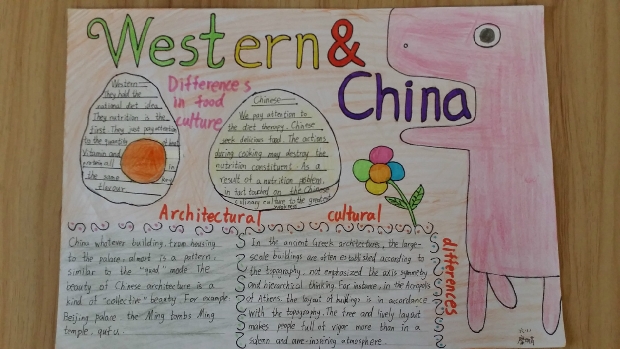 Western &
China
Differences
in food
culture
Western
They hold the
national diet idea.
They nutrition is the
first. They just pay attention
to the quantity of heat
Vitamin and
protein all in
the same
flavour
Chinese
We pay attention to
the diet therapy. Chinese
seek delicious food. The actions
during cooking may destroy the
nutrition constituent. As a
result of a nutrition problem,
in fact touched on the Chinese
culinary culture to the greatest
weakness
Architectural cultural
differences
China whatever building, from housing
to the palace, almost is a pattern,
similar to the "quad" mode. The
beauty of Chinese architecture is a
kind of "collective" beauty. For example,
Beijing palace, the Ming tombs Ming
temple, qufu.
In the ancient Greek architecture, the large-
scale buildings are often established according to
the topography, not emphasized the axis symmetry
and hierarchical thinking. For instance, in the Acropolis
of Athens, the layout of buildings is in accordance
with the topography. The free and lively layout
makes people full of vigor more than in a
solemn and awe-inspiring atmosphere.